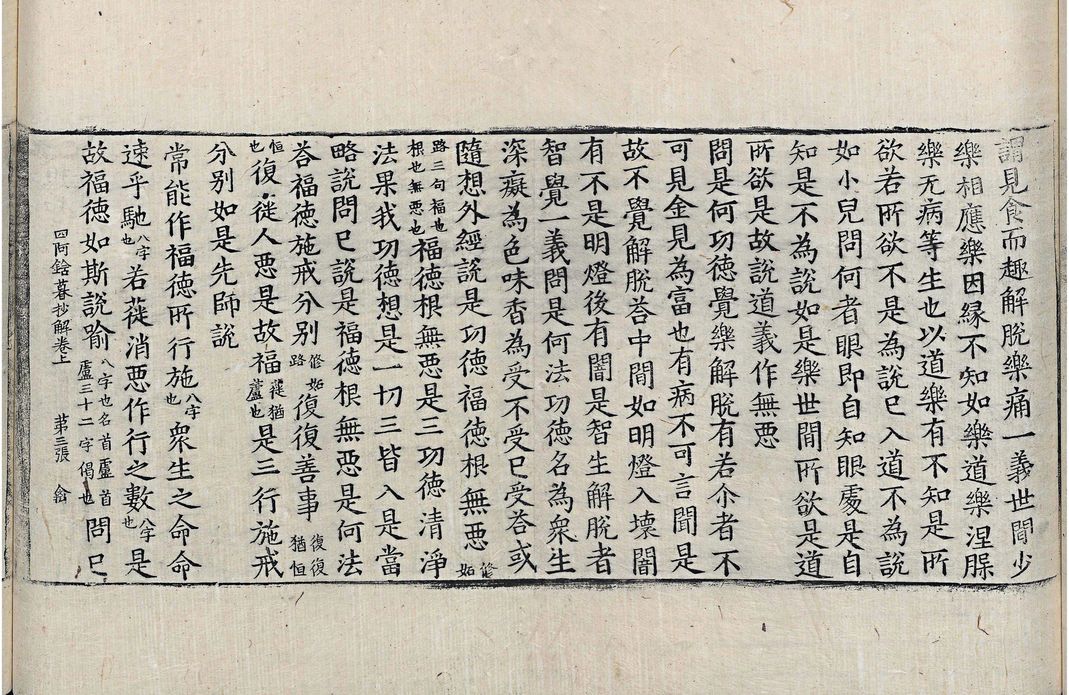 謂見食而趣解脫樂痛一義世間少
樂相應樂因緣不知如樂道樂涅脲
樂无病等生也以道樂有不知是所
欲若所欲不是為說已入道不為說
如小兒問何者眼即自知眼處是自
知是不為說如是樂世間所欲是道
所欲是故說道義作無惡
問是何功德覺樂解脫有若尒者不
可見金見為富也有病不可言聞是
故不覺解脫荅中間如明燈入壞闇
有不是明燈後有闇是智生解脫者
智覺一義問是何法功德名為衆生
深癡為色味香為受不受已受荅或
隨想外經說是功德福德根無惡脩妬
路三句福也根也無惡也福德根無惡是三功德清淨
法果我功德想是一切三皆入是當
略說問已說是福德根無惡是何法
荅福德施戒分別脩妬路復復善事復復猶恒
恒也復從人惡是故福蓰猶蘆也是三行施戒
分別如是先師說
常能作福德所行施八字也衆生之命命
速乎馳八字也若蓰消惡作行之數八字也是
故福德如斯說喻八字也名首盧首盧三十二字偈也問已
四阿鋡暮抄解卷上 第三張 㑹